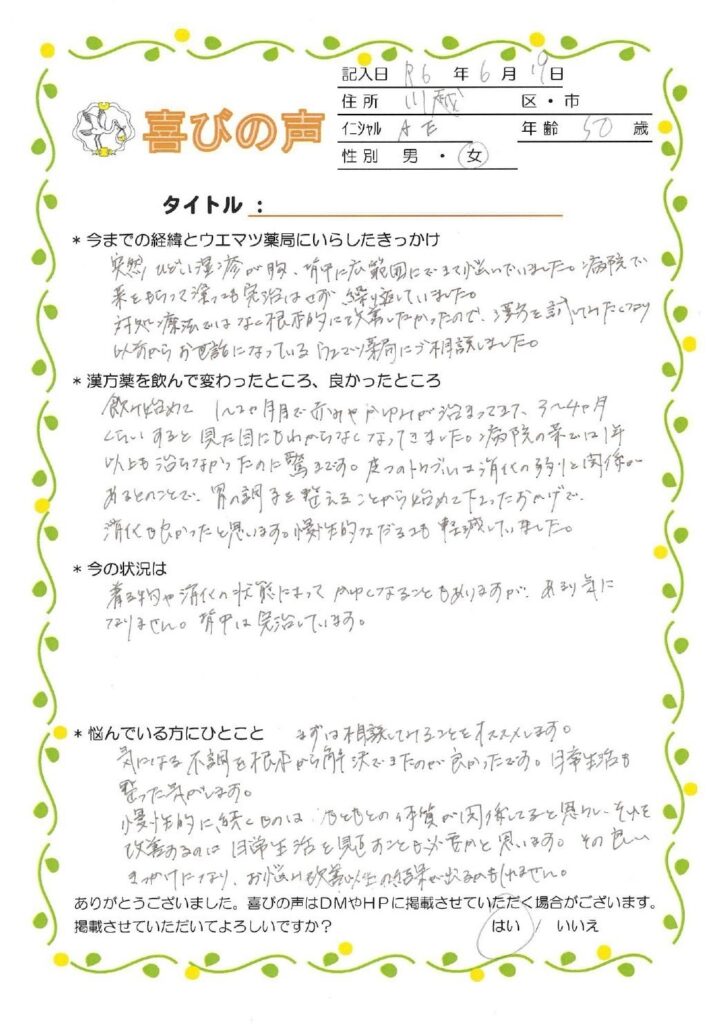 記入日 R6 年 6 月 19 日
住所 川越 区・市
イニシャル A E 年齢 50 歳
性別 男 ・ 女
喜びの声
タイトル：
* 今までの経緯とウエマツ薬局にいらしたきっかけ
突然、ひどい湿疹が胸、背中に広範囲にできて悩んでいました。病院で
薬をもらって塗っても完治はせず、繰り返していました。
対処療法ではなく根本的に改善したかったので、漢方を試してみたくなり
以前からお世話になっているウエマツ薬局にご相談しました。
* 漢方薬を飲んで変わったところ、良かったところ
飲み始めて 1~2ヶ月間で赤みやかゆみが治まってきて、3~4ヶ月
くらいすると見た目にもわからなくなってきました。病院の薬では1年
以上も治らなかったのに驚きです。皮フのトラブルは消化の弱りと関係が
あるとのことで、胃の調子を整えることから始めて下さったおかげで、
消化も良かったと思います。慢性的なだるさも軽減していました。
* 今の状況は
着る物や消化の状態によって かゆくなることもありますが、あまり気に
なりません。背中は完治しています。
* 悩んでいる方にひとこと まずは相談してみることをオススメします。
気になる不調を根本から解決できたのが良かったです。日常生活も
整った気がします。
慢性的に続くものは、もともとの体質が関係してると思うし、それを
改善するのは日常生活を見直すことも必要かと思います。その良い
きっかけになり、お悩みも改善以上の結果が出るかもしれません。
ありがとうございました。喜びの声はDMやHPに掲載させていただく場合がございます。
掲載させていただいてよろしいですか？ はい / いいえ